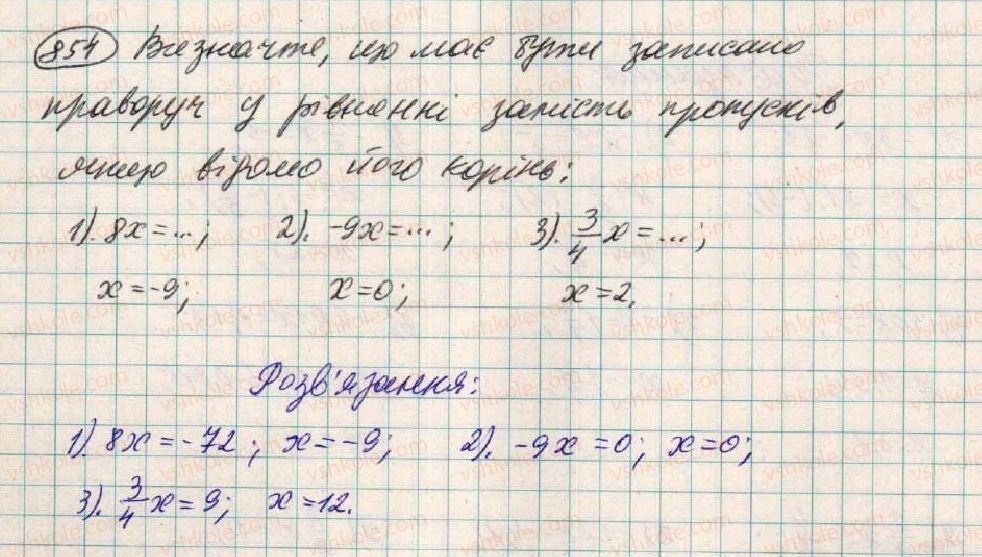 854 Визначте, що має бути записано
праворуч у рівнянні замість пропусків,
якщо відомо його корінь:
1). 8x = ...; 2). -9x = ...; 3). 3/4 x = ...;
x = -9; x = 0; x = 2.
Розв'язання:
1). 8x = -72; x = -9; 2). -9x = 0; x = 0;
3). 3/4 x = 9; x = 12.